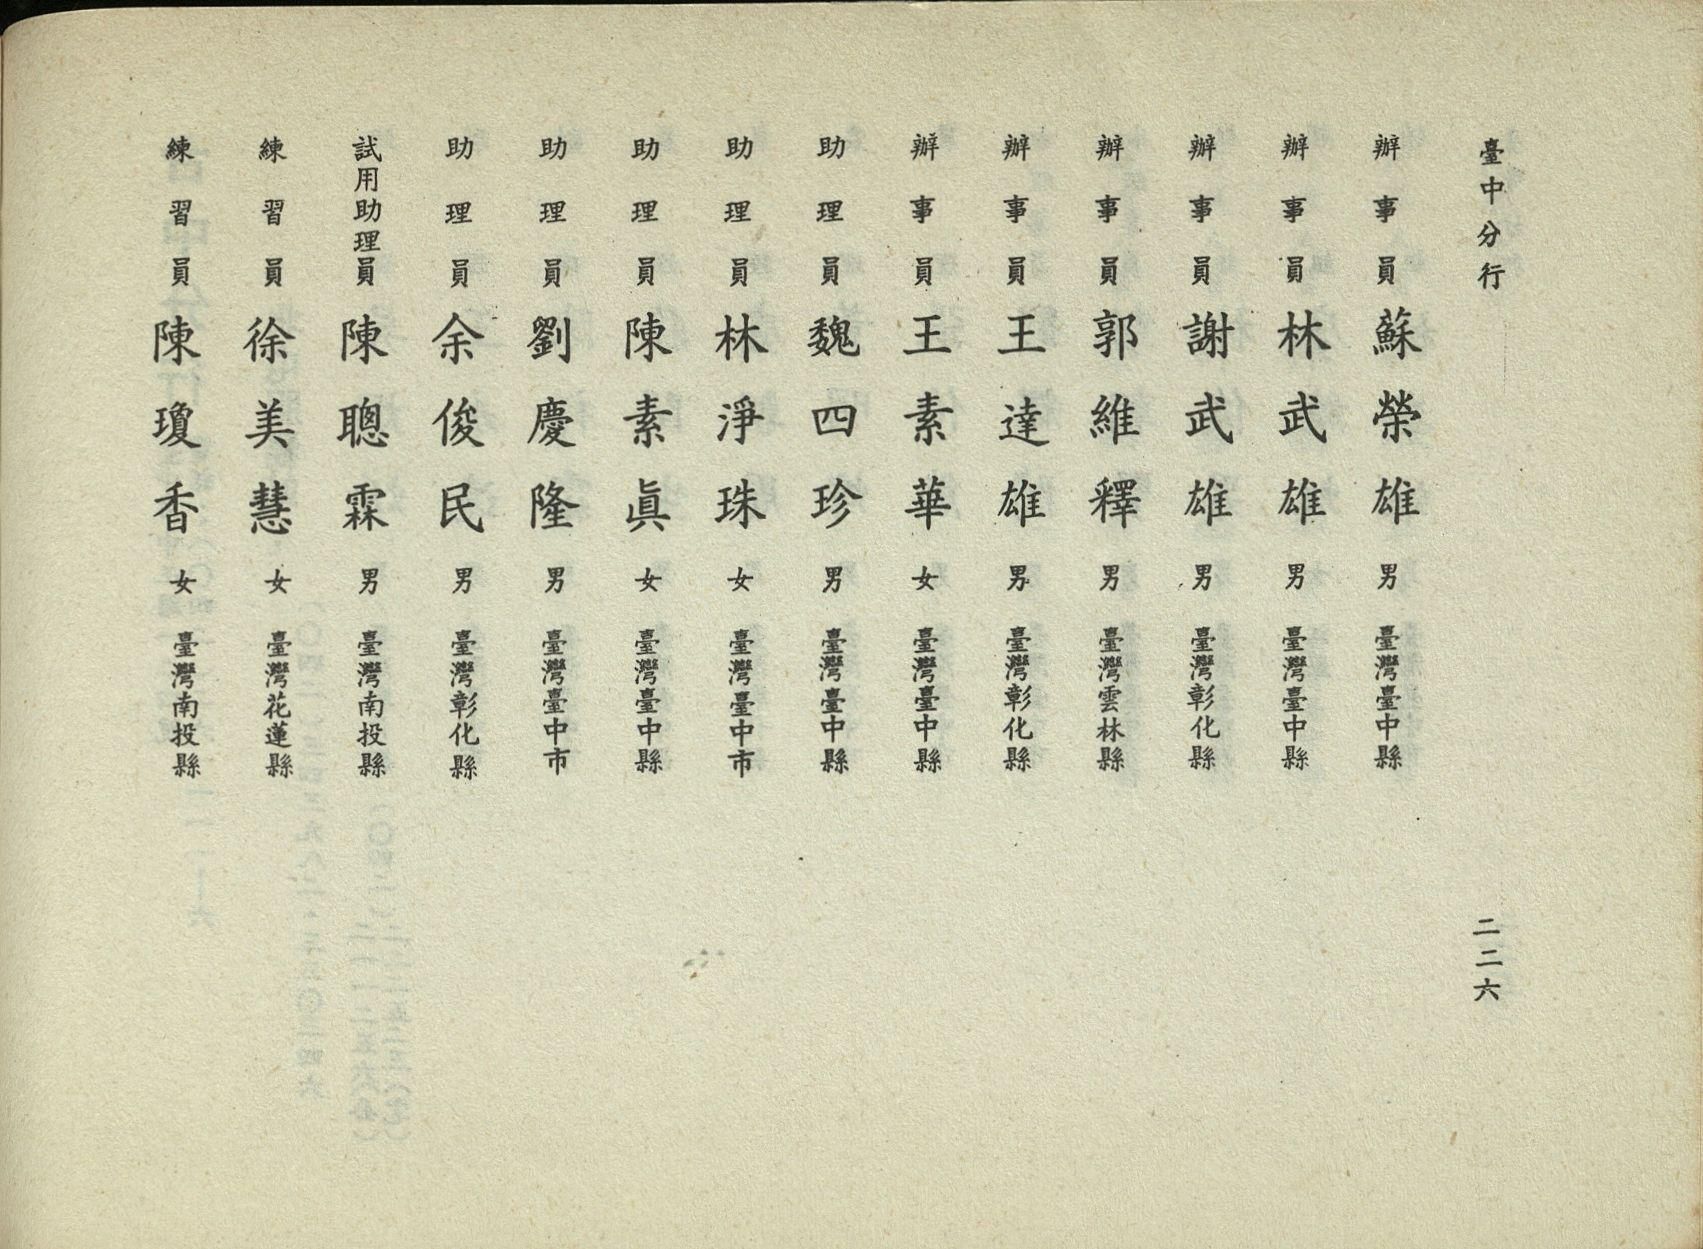 臺中分行
二二六
辦事員 蘇榮雄 男 臺灣臺中縣
辦事員 林武雄 男 臺灣臺中縣
辦事員 謝武雄 男 臺灣彰化縣
辦事員 郭維釋 男 臺灣雲林縣
辦事員 王達雄 男 臺灣彰化縣
辦事員 王素華 女 臺灣臺中縣
助理員 魏四珍 男 臺灣臺中縣
助理員 林淨珠 女 臺灣臺中市
助理員 陳素眞 女 臺灣臺中縣
助理員 劉慶隆 男 臺灣臺中市
助理員 余俊民 男 臺灣彰化縣
試用助理員 陳聰霖 男 臺灣南投縣
練習員 徐美慧 女 臺灣花蓮縣
練習員 陳瓊香 女 臺灣南投縣